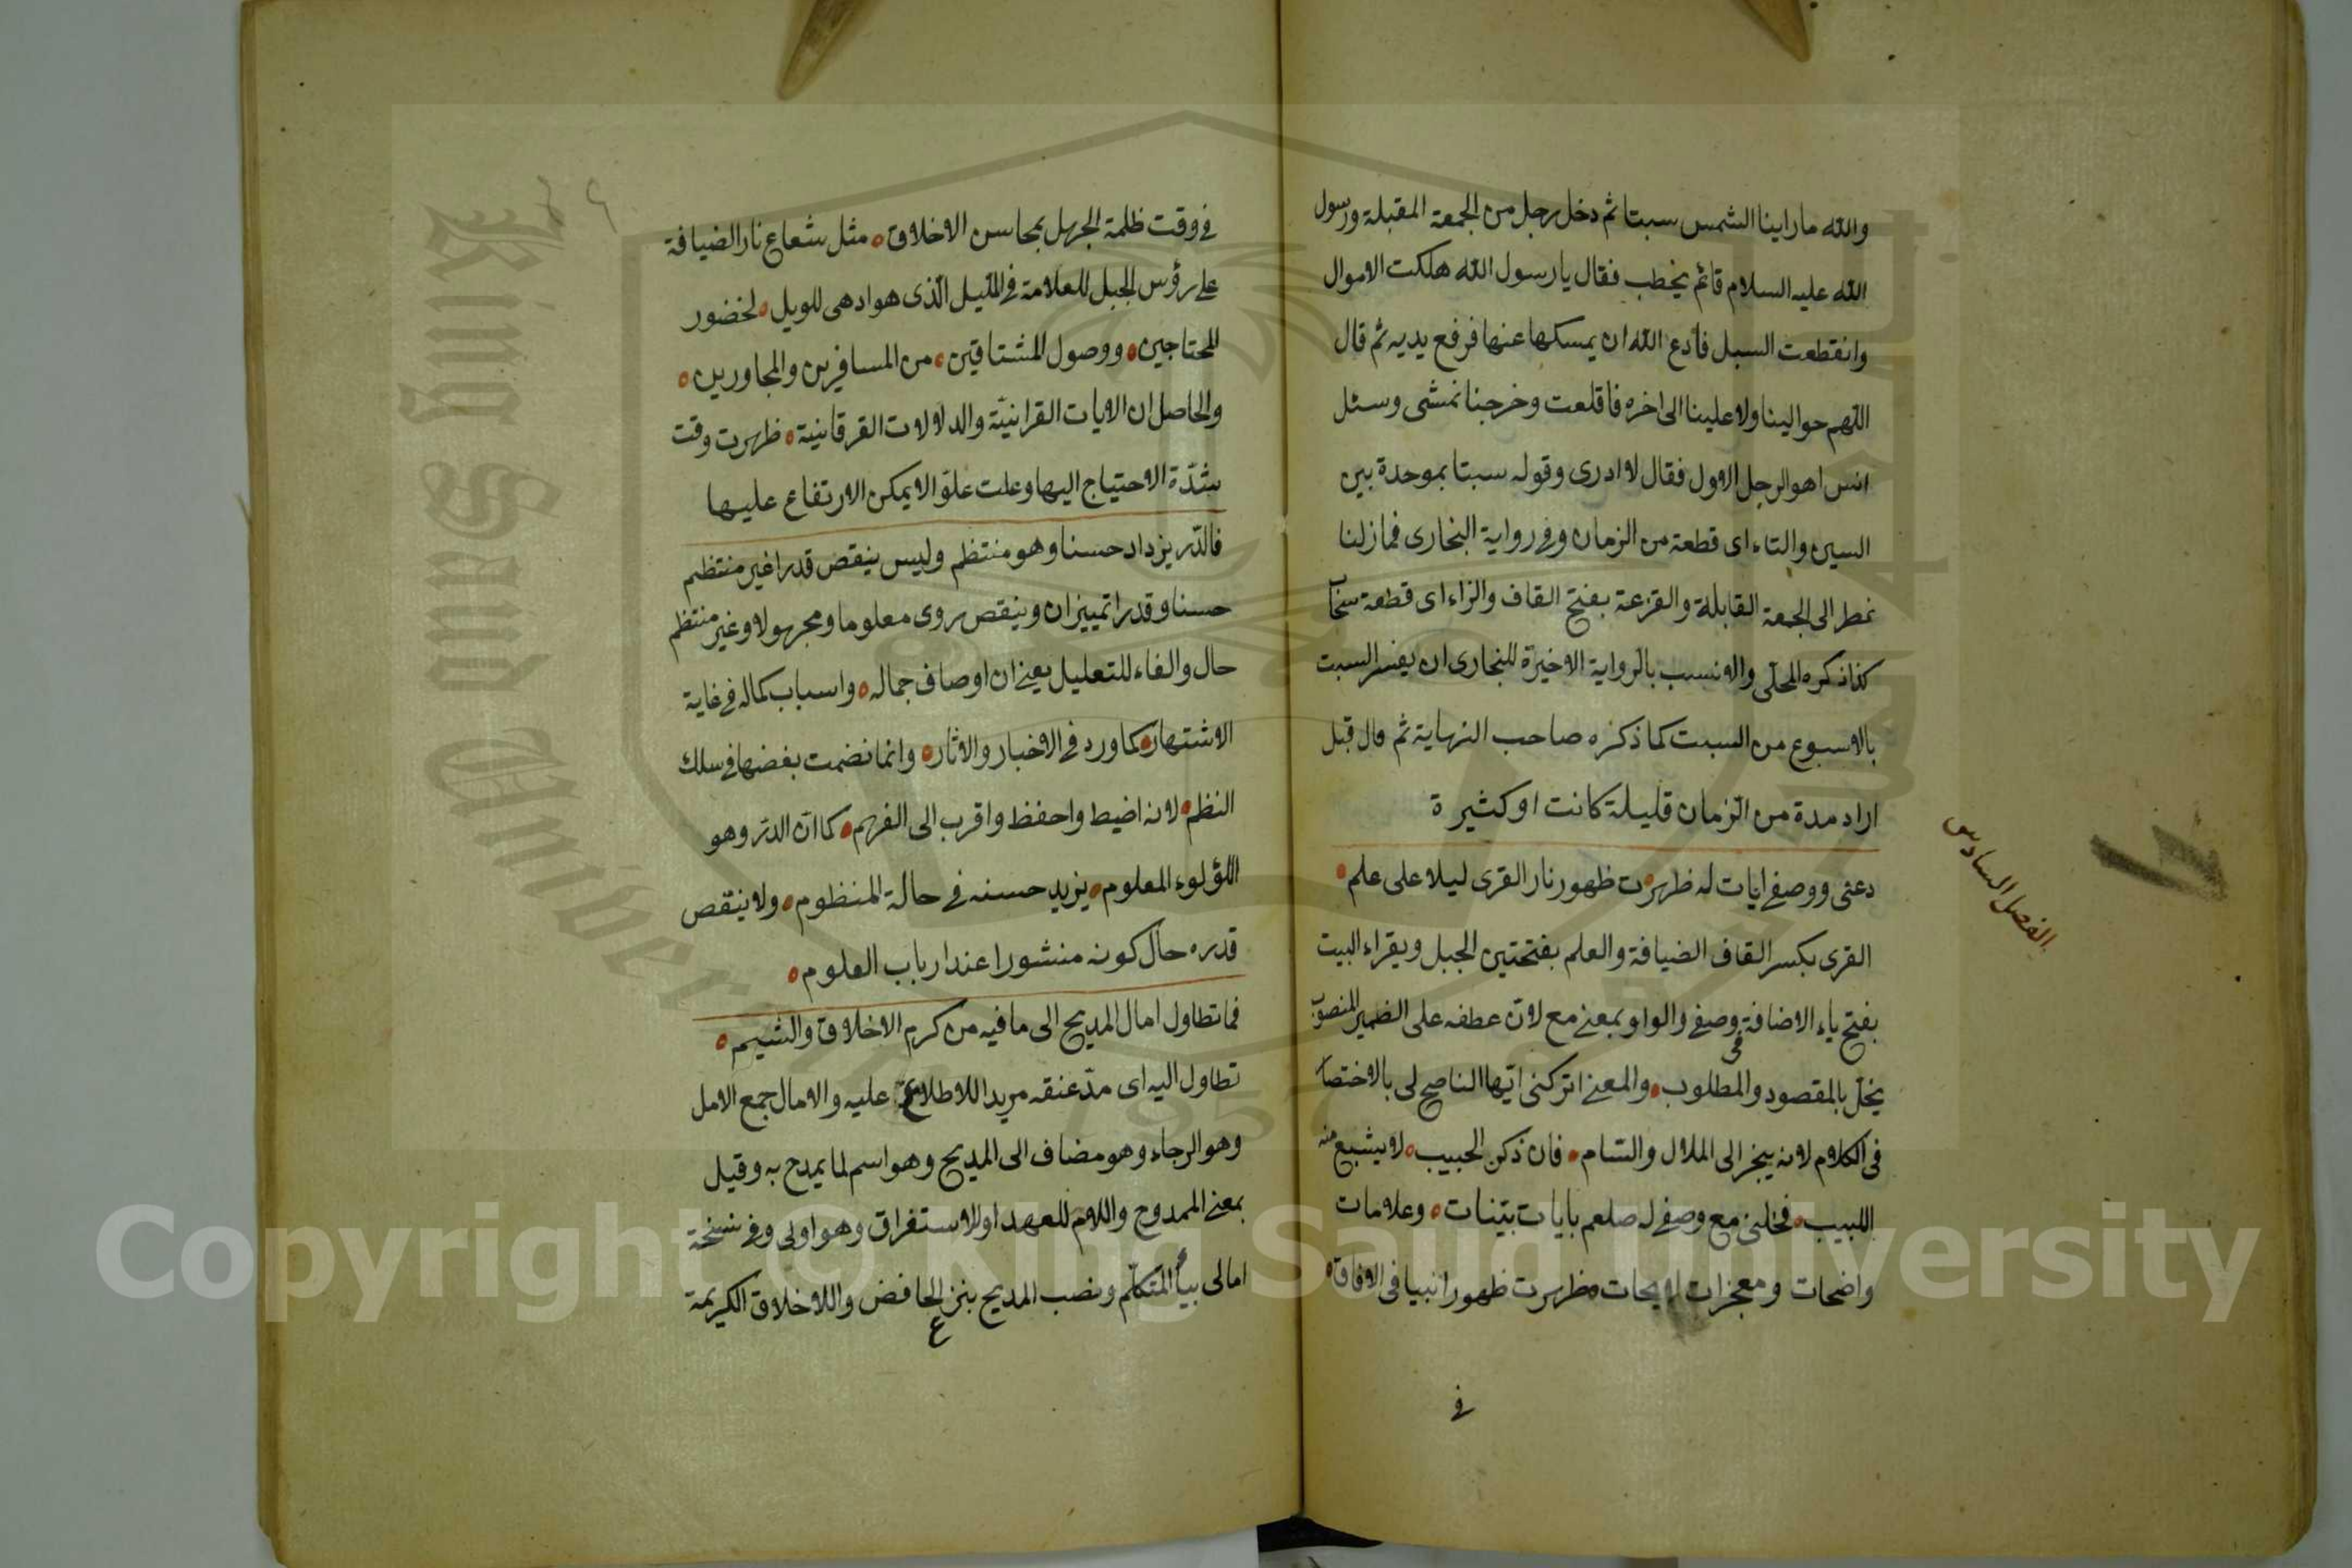 والله ما راينا الشمس سبتا ثم دخل رجل من الجمعة المقبلة ورسول
الله عليه السلام قائم يخطب فقال يا رسول الله هلكت الاموال
وانقطعت السبل فأدع الله ان يمسكها عنها فرفع يديه ثم قال
اللهم حوالينا ولا علينا الى اخره فاقلعت وخرجنا نمشى وسئل
انس اهو الرجل الاول فقال لا ادرى وقوله سبتا بموحدة بين
السين والتاء اى قطعة من الزمان وفى رواية البخارى فما زلنا
نمطر الى الجمعة القابلة والقزعة بفتح القاف والزاء اى قطعة سحاب
كذا ذكره المحلّى والانسب بالرواية الاخيرة للبخارى ان يفسر السبت
بالاسبوع من السبت كما ذكره صاحب النهاية ثم قال قبل
اراد مدة من الزمان قليلة كانت او كثيرة
دعنى ووصفى ايات له ظهرت ظهور نار القرى ليلا على علم
الفصل السادس
القرى بكسر القاف الضيافة والعلم بفتحتين الجبل ويقراء البيت
بفتح ياء الاضافة فى وصفى والواو بمعنى مع لانّ عطفه على الضمير المنصوب
يخلّ بالمقصود والمطلوب والمعنى اتركنى ايّها الناصح لى بالاختصار
فى الكلام لانه ينجر الى الملال والسّام فان ذكر الحبيب لا يشبع منه
اللبيب فخلنى مع وصفى له صلعم بايات بيّنات وعلامات
واضحات ومعجزات لايحات ظهرت ظهور انبيا فى الافاق
فى
٤٩
فى وقت ظلمة الجهل بمحاسن الاخلاق مثل شعاع نار الضيافة
على رؤس الجبل للعلامة فى اللّيل الّذى هو ادهى للويل لحضور
المحتاجين ووصول المشتاقين من المسافرين والمجاورين
والحاصل ان الايات القرانيّة والدلالات الفرقانية ظهرت وقت
شدّة الاحتياج اليها وعلت علوّا لا يمكن الارتفاع عليها
فالدّر يزداد حسنا وهو منتظم وليس ينقص قدرا غير منتظم
حسنا وقدرا تمييزان وينقص روى معلوما ومجهولا وغير منتظم
حال والفاء للتعليل يعنى ان اوصاف جماله واسباب كماله فى غاية
الاشتهار كما ورد فى الاخبار والاثار وانما نضمت بغضها فى سلك
النظم لانه اضبط واحفظ واقرب الى الفهم كما انّ الدرّ وهو
اللؤلوء المعلوم يزيد حسنه فى حالة المنظوم ولا ينقص
قدره حال كونه منشورا عند ارباب العلوم
فما تطاول امال المديح الى ما فيه من كرم الاخلاق والشيم
تطاول اليه اى مدّ عنقه مريدا للاطلاع عليه والامال جمع الامل
وهو الرجاء وهو مضاف الى المديح وهو اسم لما يمدح به وقيل
بمعنى الممدوح واللام للعهد او للاستغراق وهو اولى وفى نسخة
امالى بياء المتكلّم ونصب المديح بنزع الخافض واللاخلاق الكريمة
King Saud University
1957
Copyright © King Saud University